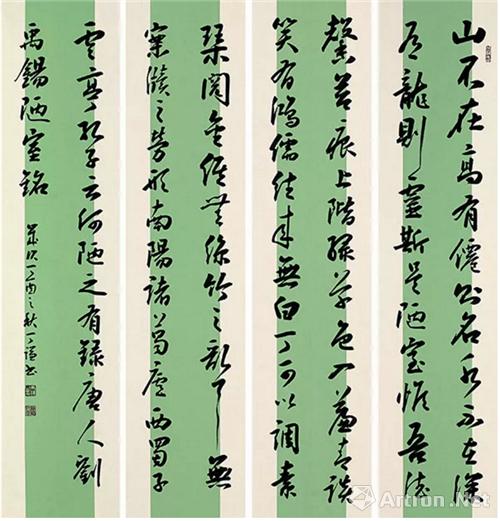 山不在高有僊則名水不在深
有龍則靈斯是陋室惟吾德
馨苔痕上階綠草色入簾青談
笑有鴻儒往來無白丁可以調素
琴閱金經無絲竹之亂耳無
案牘之勞形南陽諸葛廬西蜀子
雲亭孔子云何陋之有録唐人劉
禹錫陋室銘
歲次丁酉之秋丁書
Artron.Net